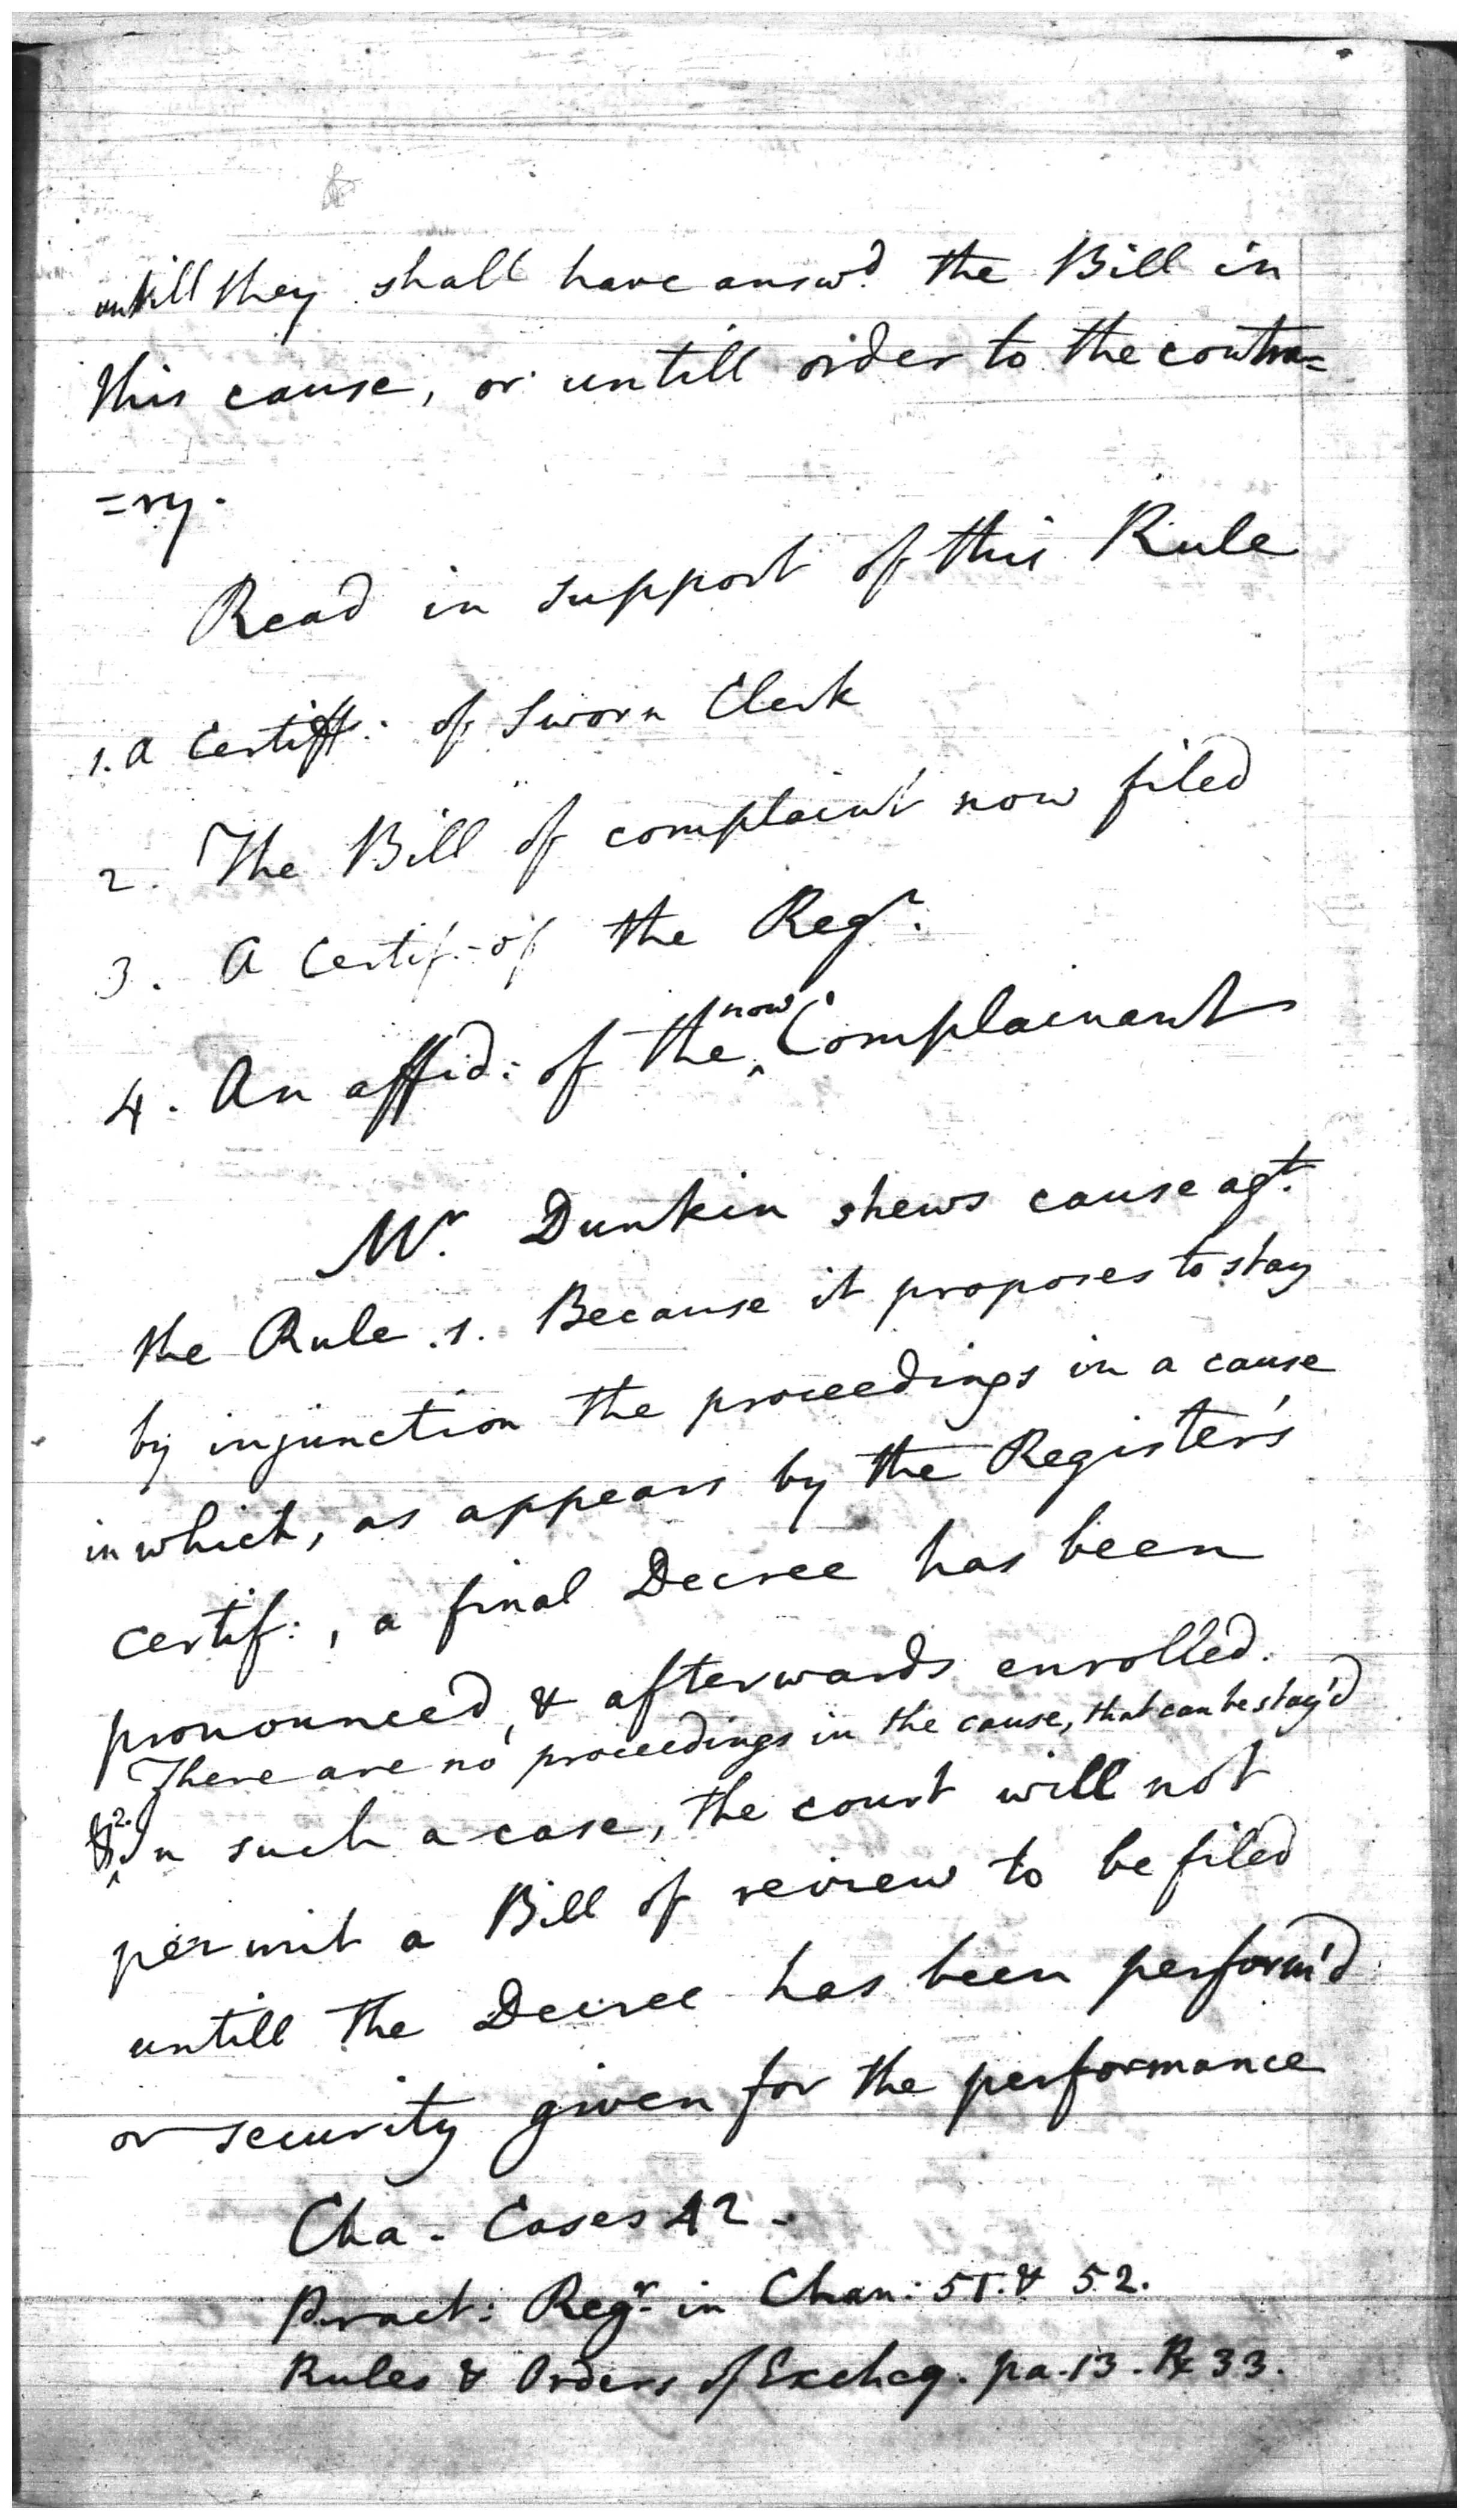 untill they shall have answd. the Bill in
this cause, or untill order to the contra=
=ry.
Read in support of this Rule
1. A Certiff: of Sworn Clerk
2. The Bill of complaint now filed
3. A Certif: of the Regr.
4. An affid: of the now Complainant
Mr. Dunkin shews cause agt.
the Rule. 1. Because it proposes to stay
by injunction the proceedings in a cause
in which, as appears by the Register's
certif:, a final Decree has been
pronounced, & afterwards enrolled.
There are no proceedings in the cause, that can be stay'd
2. In such a case, the court will not
permit a Bill of review to be filed
untill the Decree has been perform'd
or security given for the performance
Cha. Cases 42.
Pract: Regr. in Chan: 51. & 52.
Rules & Orders of Excheq. pa. 13. 33.